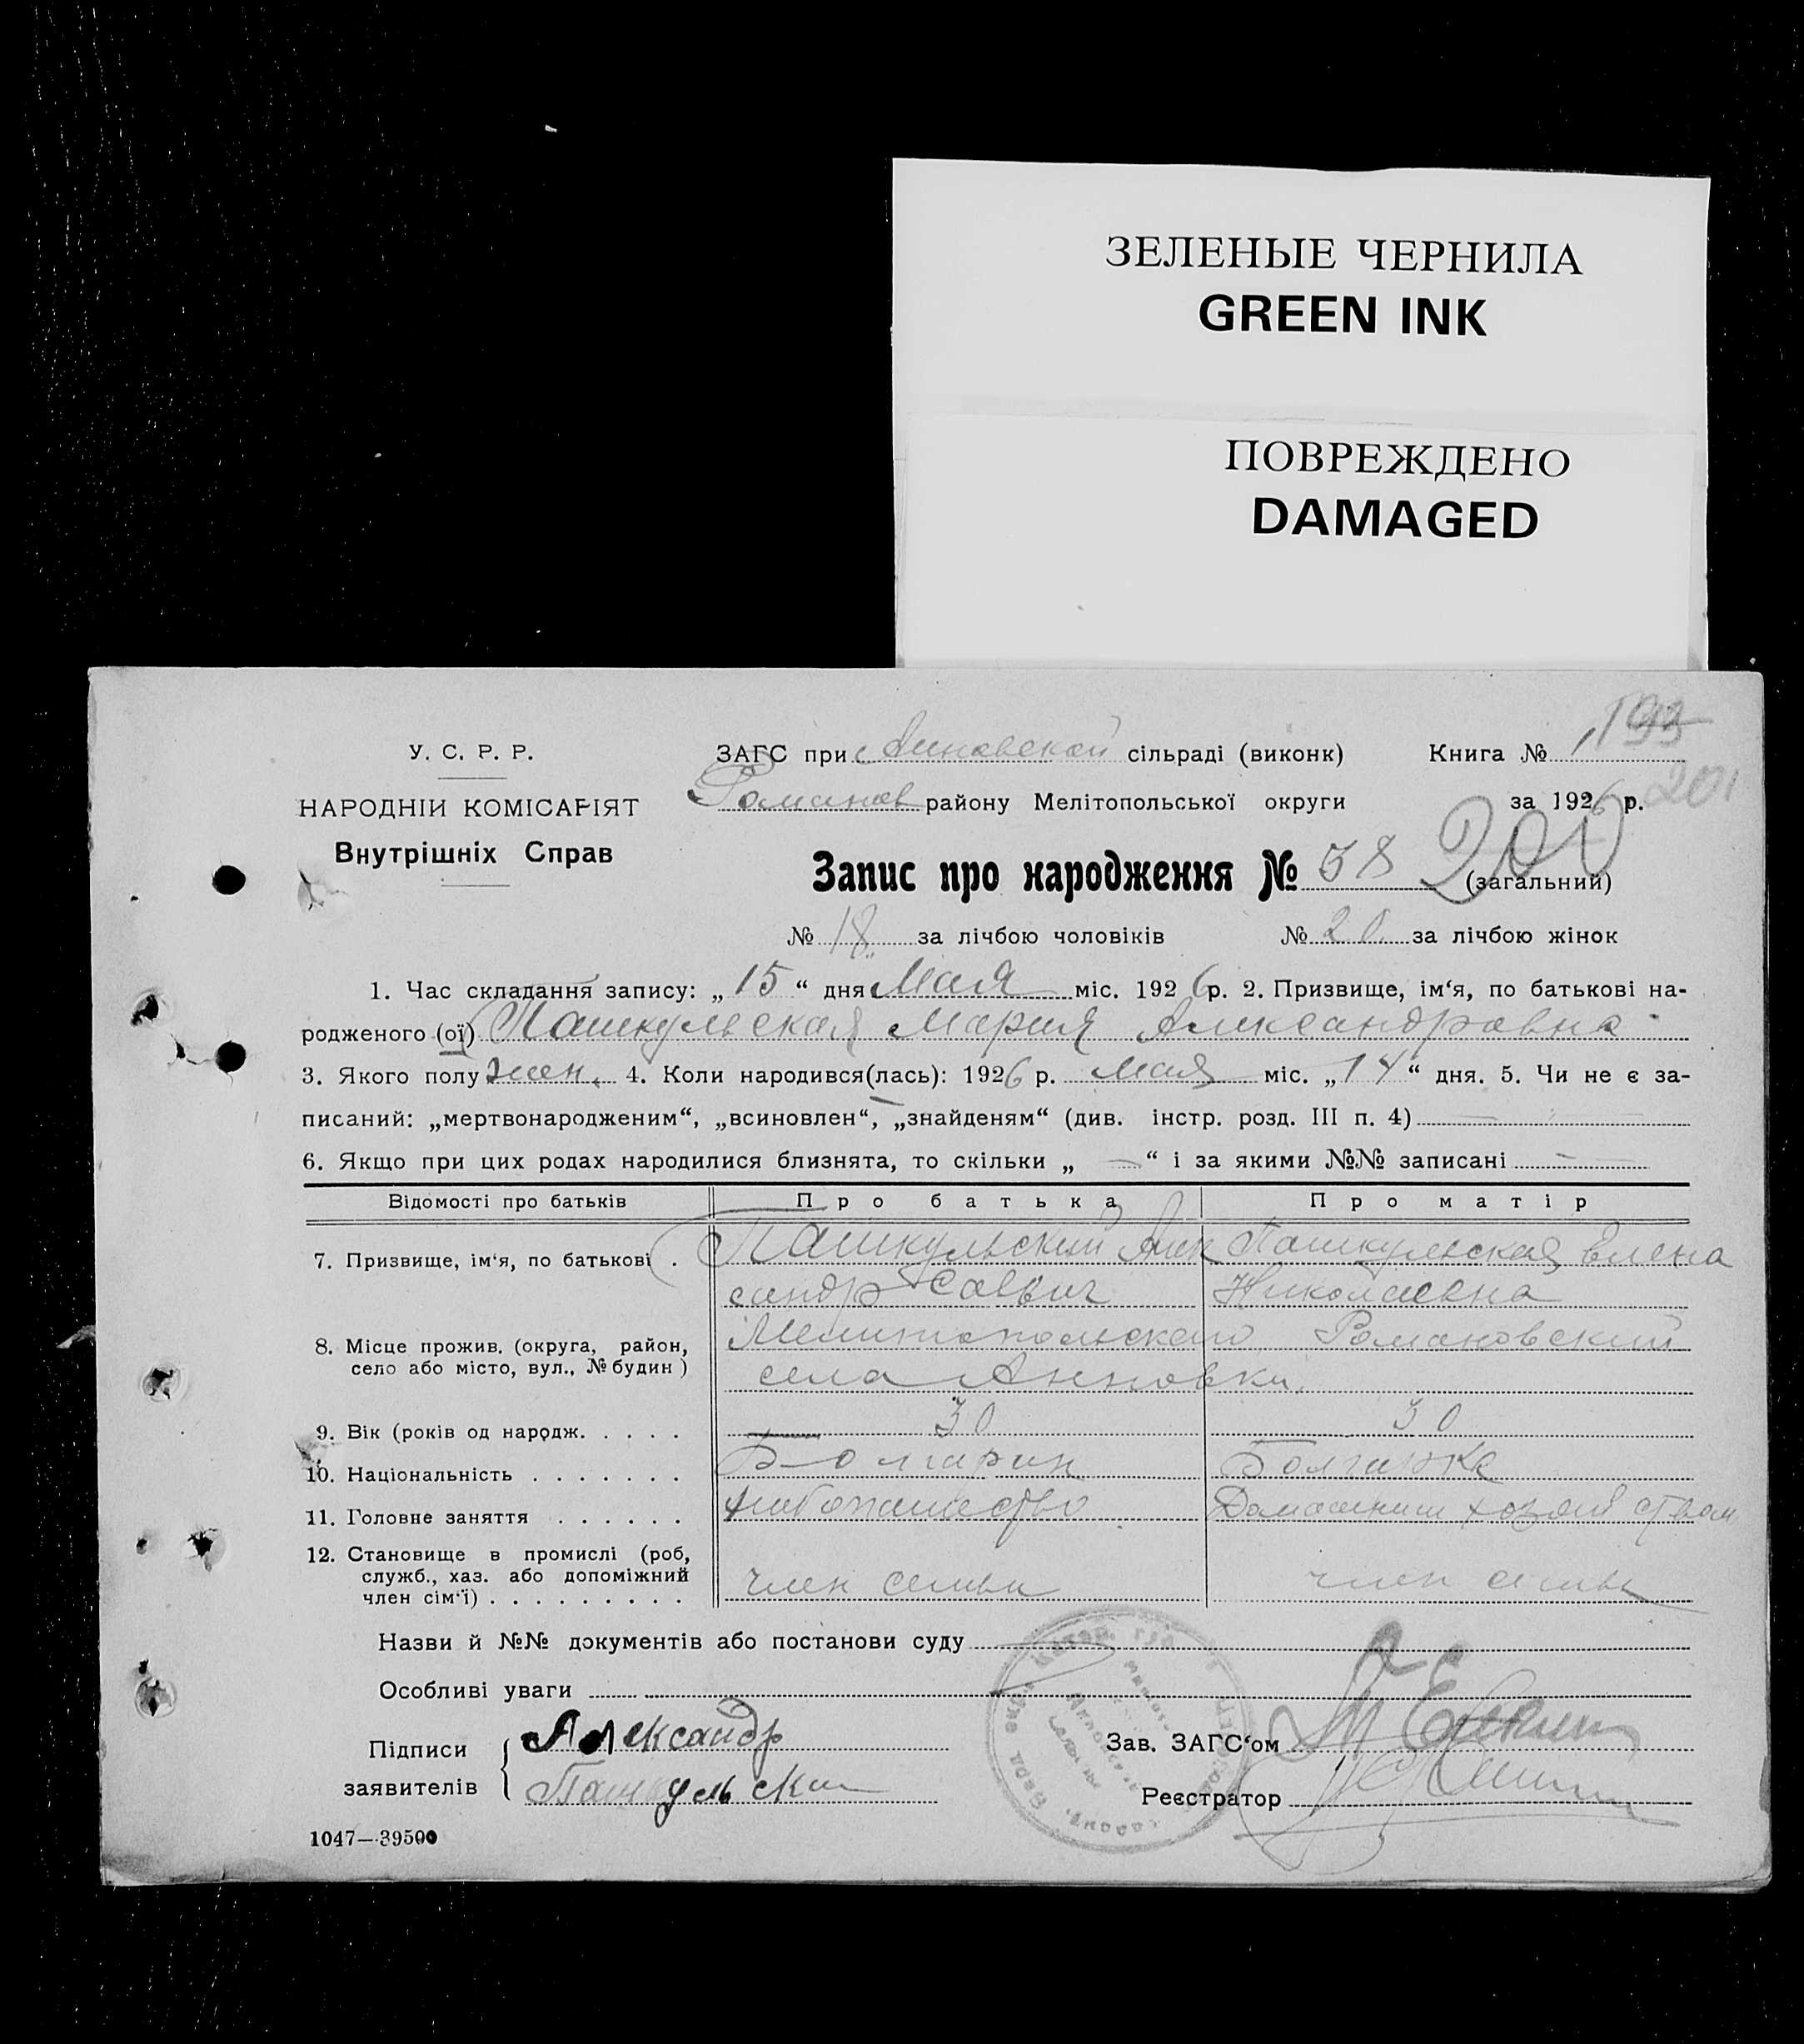 ЗЕЛЕНЫЕ ЧЕРНИЛА
GREEN INK
ПОВРЕЖДЕНО
DAMAGED
193
201
У. С. Р. Р.
НАРОДНІЙ КОМІСАРІЯТ
Внутрішніх Справ
ЗАГС при Анновской сільраді (виконк) Книга №
Романов району Мелітопольської округи за 1926 р.
Запис про народження № 38 200 (загальний)
№ 18 за лічбою чоловіків № 20 за лічбою жінок
1. Час складання запису: „15“ дня Мая міс. 1926 р. 2. Призвище, ім‘я, по батькові на-
родженого (ої) Пашкульская Мария Александровна
3. Якого полу жен. 4. Коли народився(лась): 1926 р. Мая міс. „14“ дня. 5. Чи не є за-
писаний: „мертвонародженим“, „всиновлен“, „знайденям“ (див. інстр. розд. III п. 4) —
6. Якщо при цих родах народилися близнята, то скільки „ — “ і за якими №№ записані —
Відомості про батьків Про батька Про матір
7. Призвище, ім‘я, по батькові . Пашкульский Алек Пашкульская Елена
сандр Савич Николаевна
8. Місце прожив. (округа, район, Мелитопольского Романовский
село або місто, вул., № будин ) села Анновки.
9. Вік (років од народж. . . . . 30 30
10. Національність . . . . . . . Болгарин Болгарка
11. Головне заняття . . . . . . хлебопашество Домашним хозяйством
12. Становище в промислі (роб,
служб., хаз. або допоміжний
член сім‘ї) . . . . . . . . . член семьи член семьи
Назви й №№ документів або постанови суду
Особливі уваги
Підписи заявителів { Александр
Пашкульски
Зав. ЗАГС‘ом
Реєстратор
1047—39500